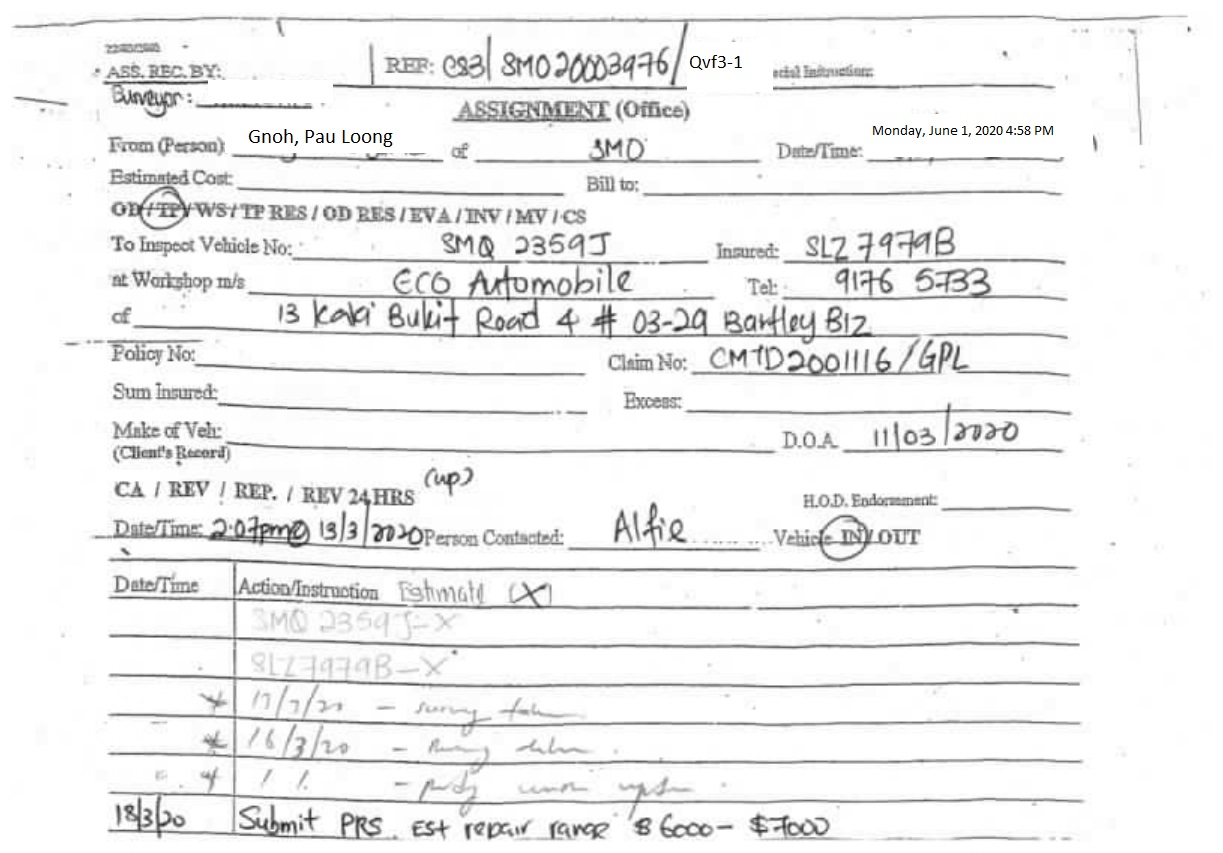 ASS. REC. BY:
REF: CS3/ SMO20003976/ Qvf3-1
cial Instruction:
Surveyor:
ASSIGNMENT (Office)
From (Person) Gnoh, Pau Loong of SMO Date/Time: Monday, June 1, 2020 4:58 PM
Estimated Cost: Bill to:
OD / TP / WS / TP RES / OD RES / EVA / INV / MV / CS
To Inspect Vehicle No: SMQ 2359J Insured: SLZ 7979B
at Workshop m/s ECO Automobile Tel: 9176 5733
of 13 Kaki Bukit Road 4 # 03-29 Bartley Biz
Policy No: Claim No: CMTD2001116/GPL
Sum Insured: Excess:
Make of Veh: D.O.A. 11/03/2020
(Client's Record)
(up)
CA / REV / REP. / REV 24 HRS H.O.D. Endorsement:
Date/Time: 2.07pm@ 13/3/2020 Person Contacted: Alfie Vehicle IN / OUT
Date/Time Action/Instruction Estimate (X)
SMQ 2359J-X
SLZ7979B-X
16/3/20 -
18/3/20 Submit PRS. Est repair range $6000- $7000